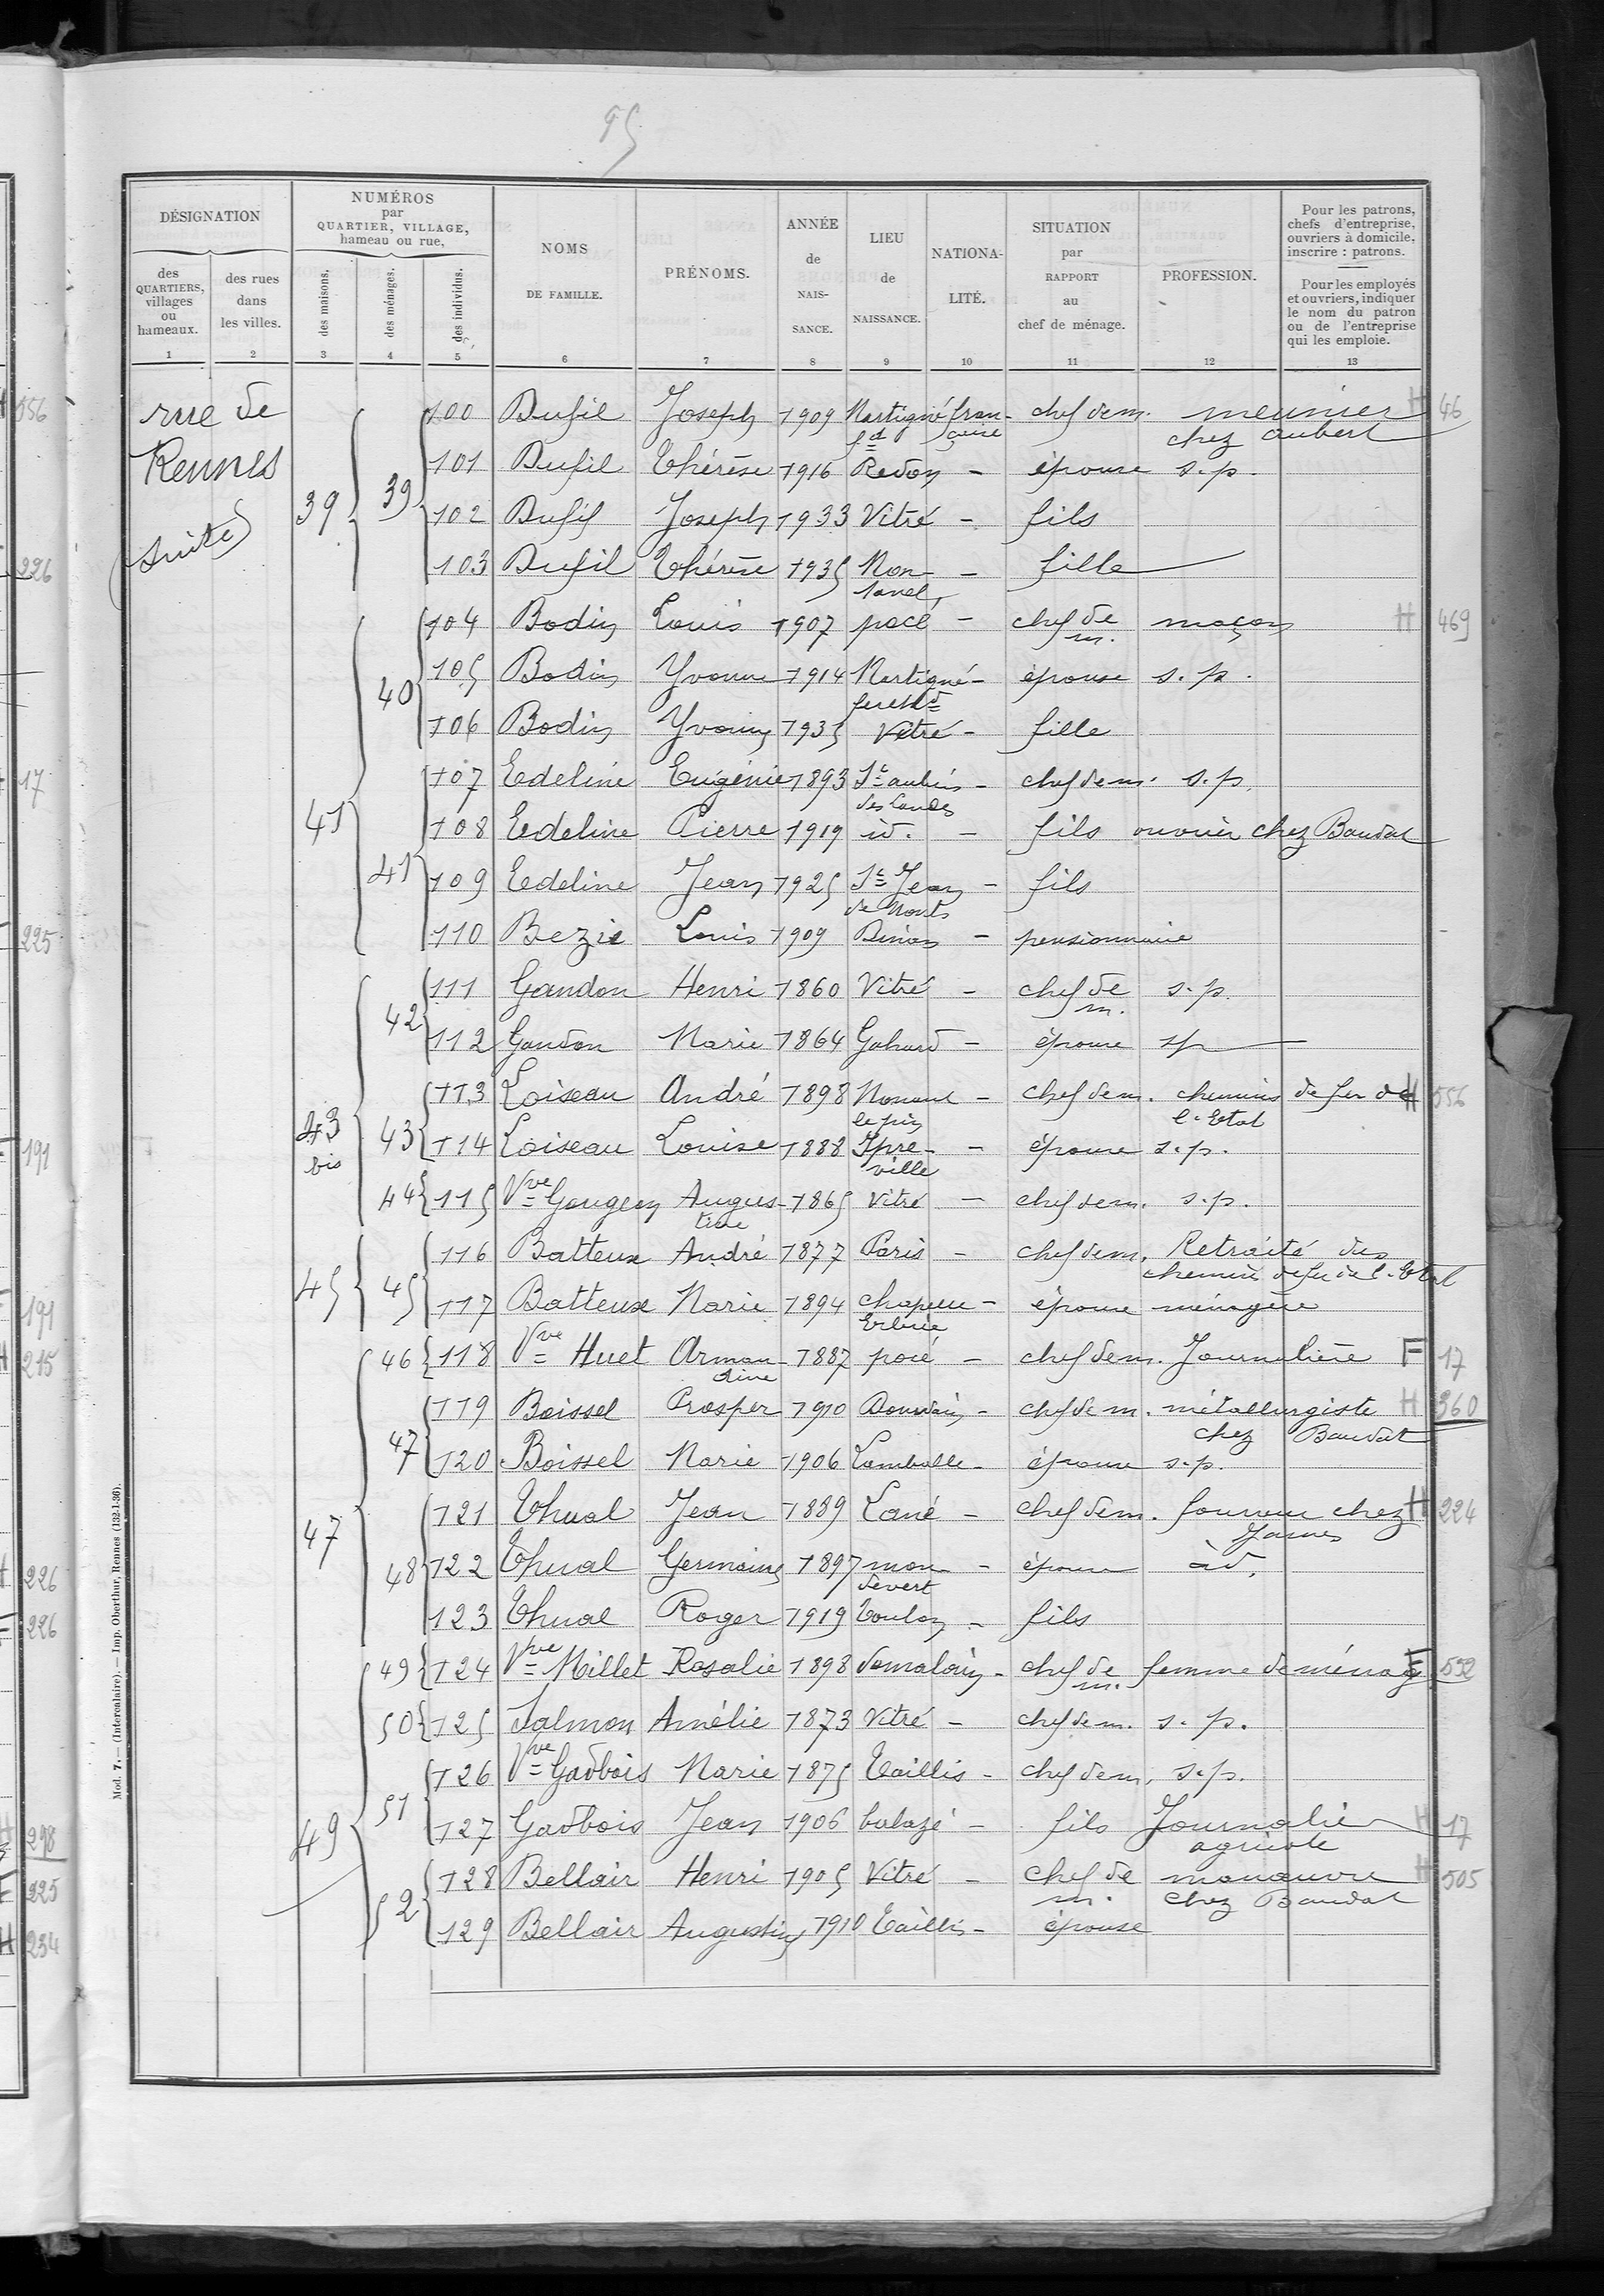 95
DÉSIGNATION
NUMÉROS
par
QUARTIER, VILLAGE,
hameau ou rue,
des
QUARTIERS,
villages
ou
hameaux.
des rues
dans
les villes.
des maisons.
des ménages.
des individus.
NOMS
DE FAMILLE.
PRÉNOMS.
ANNÉE
de
NAIS-
SANCE.
LIEU
de
NAISSANCE.
NATIONA-
LITÉ.
SITUATION
par
RAPPORT
au
chef de ménage.
PROFESSION.
Pour les patrons,
chefs d'entreprise,
ouvriers à domicile,
inscrire : patrons.
Pour les employés
et ouvriers, indiquer
le nom du patron
ou de l'entreprise
qui les emploie.
1 2 3 4 5 6 7 8 9 10 11 12 13
rue de
Rennes
(suite)
39 39 100 Dufil Joseph 1909 Martigné fd française chef de m. meunier chez Aubert H 46
101 Dufil Thérèse 1916 Redon - épouse s.p.
102 Dufil Joseph 1933 Vitré - fils
103 Dufil Thérèse 1935 - fille
41 40 104 Bodin Louis 1907 pocé - chef de m. maçon H 469
105 Bodin Yvonne 1914 Martigné - épouse s.p.
106 Bodin Yvonne 1935 Vitré - fille
41 107 Edeline Eugénie 1893 St aubin des Landes - chef de m. s.p.
108 Edeline Pierre 1919 id. - fils ouvrier chez Baudat
109 Edeline Jean 1925 St Jean de Monts - fils
110 Bezie Louis 1909 Dinan - pensionnaire
43 bis 42 111 Gandon Henri 1860 Vitré - chef de m. s.p.
112 Gandon Marie 1864 Gahard - épouse sp
43 113 Loiseau André 1898 Nonant le pin - chef de m. chemins de fer de l'Etat H 556
114 Loiseau Louise 1888 Ypreville - épouse s.p.
44 115 Vve Gougeon Augustine 1865 Vitré - chef de m. s.p.
45 45 116 Batteux André 1877 Paris - chef de m. Retraité des chemin de fer de l'Etat
117 Batteux Marie 1894 chapelle Erbrée - épouse ménagère
47 46 118 Vve Huet Armandine 1887 pocé - chef de m. Journalière F 17
47 119 Boissel Prosper 1910 Domdain - chef de m. métallurgiste chez Baudat H 360
120 Boissel Marie 1906 Lamballe - épouse s.p.
48 121 Thual Jean 1889 - chef de m. chez H 224
122 Thual Germaine 1897 mondevert - épouse id.
123 Thual Roger 1919 Toulon - fils
49 49 124 Vve Millet Rosalie 1898 domalain - chef de m. femme de ménage F 552
50 125 Salmon Amélie 1873 Vitré - chef de m. s.p.
51 126 Vve Gadbois Marie 1875 Taillis - chef de m. s.p.
127 Gadbois Jean 1906 balazé - fils Journalier agricole H 17
52 128 Bellair Henri 1905 Vitré - chef de m. manœuvre chez Baudat H 505
129 Bellair Augustine 1910 Taillis - épouse
Mod. 7. — (Intercalaire). — Imp. Oberthur, Rennes (132-1-36).
H 556
226
17
225
F 191
F 191
H 215
H 226
F 226
H 298
F 225
H 234